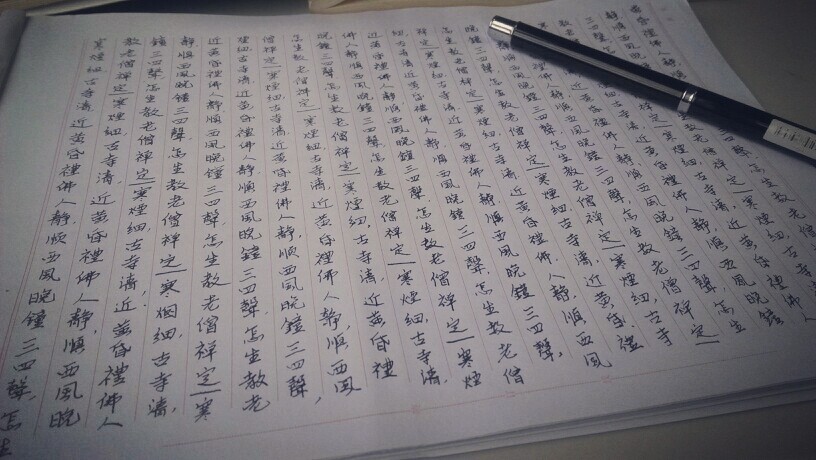 寒煙細,古寺清,近黃昏禮佛人靜,順西風晚鐘三四聲,怎生
教老僧禪定—寒煙細,古寺清,近黃昏禮佛人靜,順西風晚
鐘三四聲,怎生教老僧禪定—寒煙細,古寺清,近黃昏禮佛人
靜,順西風晚鐘三四聲,怎生教老僧禪定—寒烟細,古寺清,
近黃昏禮佛人靜,順西風晚鐘三四聲,怎生教老僧禪定—寒
煙細,古寺清,近黃昏禮佛人靜,順西風晚鐘三四聲,怎生教老
僧禪定—寒煙細,古寺清,近黃昏禮佛人靜,順西風晚鐘三四聲,
怎生教老僧禪定—寒煙細,古寺清,近黃昏禮佛人靜,順西風
晚鐘三四聲,怎生教老僧禪定—寒煙細,古寺清,近黃昏禮
佛人靜,順西風晚鐘三四聲,怎生教老僧禪定—寒煙細,古寺清,
近黃昏禮佛人靜,順西風晚鐘三四聲,怎生教老僧禪定—寒煙
細,古寺清,近黃昏禮佛人靜,順西風晚鐘三四聲,怎生教老僧
禪定—寒煙細,古寺清,近黃昏禮佛人靜,順西風晚鐘三四聲,
怎生教老僧禪定—寒煙細,古寺清,近黃昏禮佛人靜,順西風
晚鐘三四聲,怎生教老僧禪定—寒煙細,古寺清,近黃昏禮
佛人靜,順西風晚鐘三四聲,怎生教老僧禪定—寒煙細,古寺
近黃昏禮佛人靜,順西風晚鐘三四聲,怎生教老僧禪定
寒煙細,古寺清,近黃昏禮佛人靜,順西風晚鐘三四聲,怎生
教老僧禪定—寒煙細,古寺清,近黃昏禮佛人靜,順西風晚鐘
三四聲,怎生教老僧禪定—寒煙細,古寺清,近黃昏禮佛人